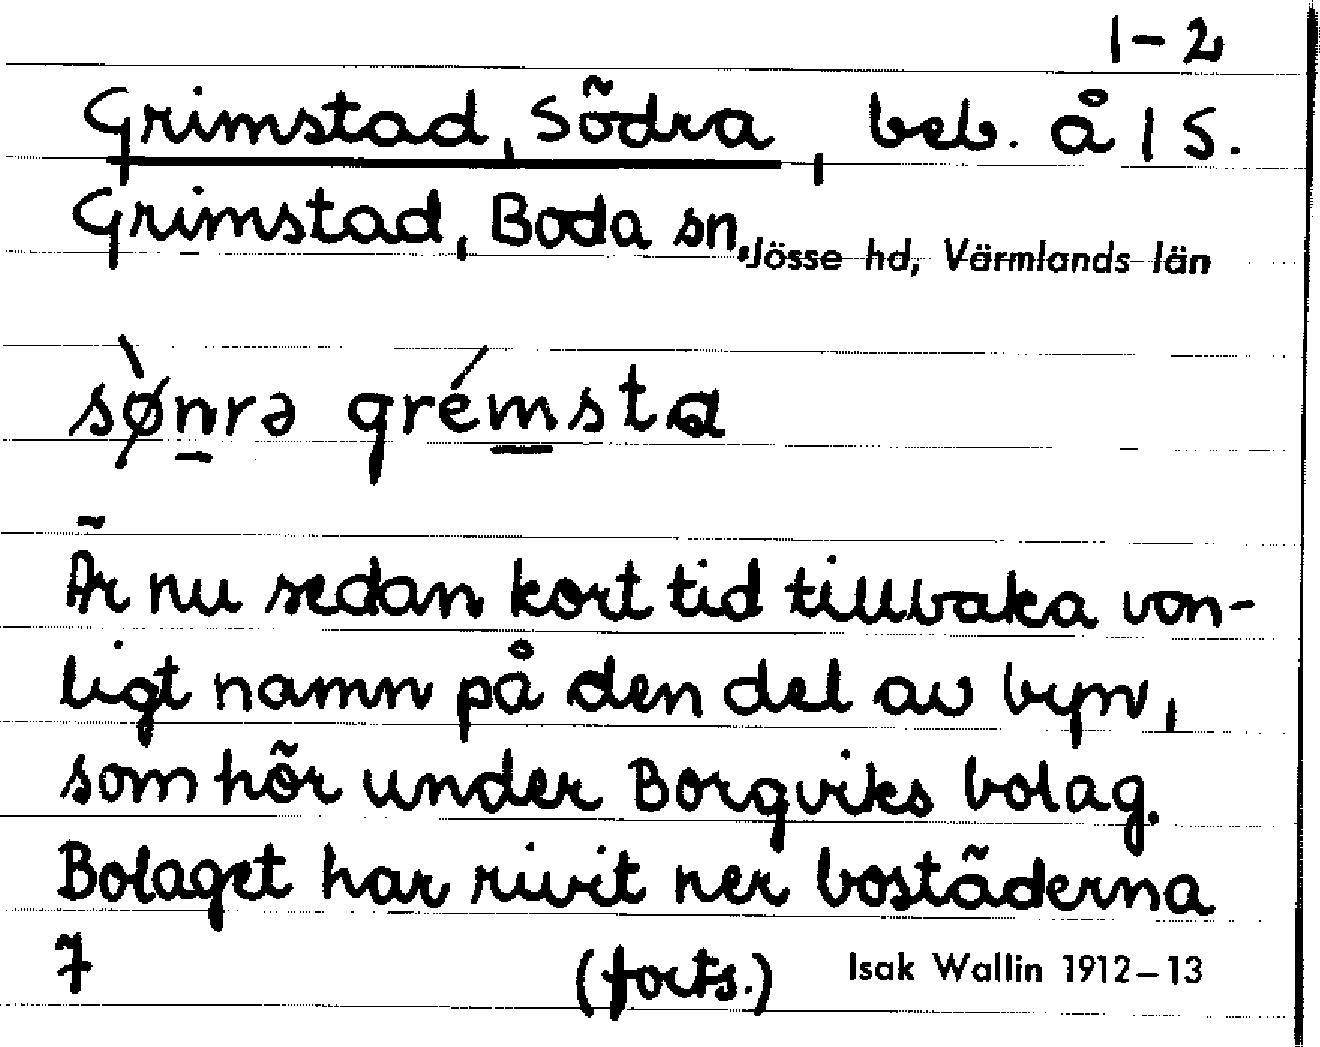 1-2
Grimstad, Södra, beb. å 1 S.
Grimstad, Boda sn, Jösse hd, Värmlands län
sø̀nrə grémsta
Är nu sedan kort tid tillbaka van-
ligt namn på den del av byn,
som hör under Borgviks bolag.
Bolaget har rivit ner bostäderna
7 (forts.) Isak Wallin 1912–13